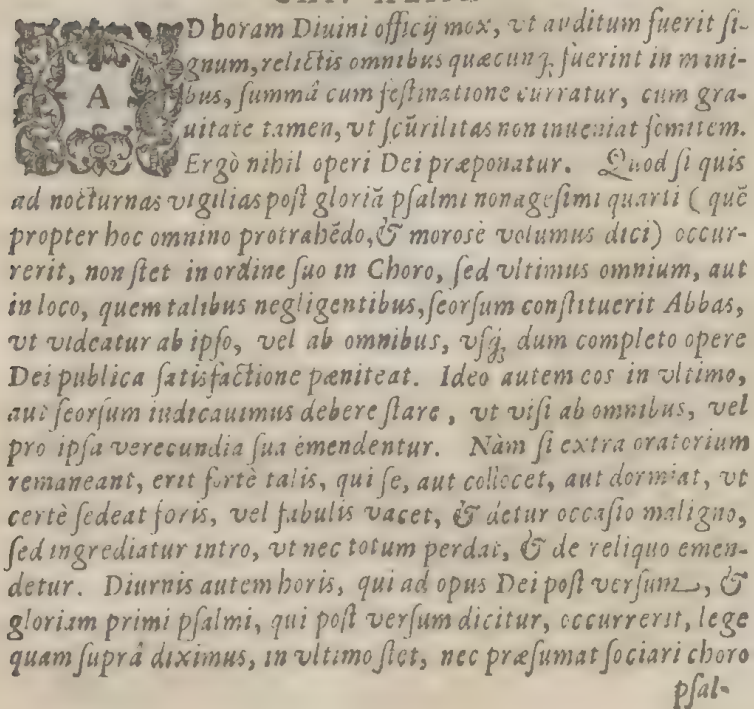 AD horam Diuini officij mox, vt auditum fuerit si-
gnum, relictis omnibus quæcunq; fuerint in mani-
bus, summâ cum festinatione curratur, cum gra-
uitate tamen, vt scurilitas non inueniat fomitem.
Ergò nihil operi Dei præponatur. Quod si quis
ad nocturnas vigilias post gloriã psalmi nonagesimi quarti ( quē
propter hoc omnino protrahēdo, & morosè volumus dici) occur-
rerit, non stet in ordine suo in Choro, sed vltimus omnium, aut
in loco, quem talibus negligentibus, seorsum constituerit Abbas,
vt videatur ab ipso, vel ab omnibus, vsq; dum completo opere
Dei publica satisfactione pæniteat. Ideo autem eos in vltimo,
aut seorsum iudicauimus debere stare, vt visi ab omnibus, vel
pro ipsa verecundia sua emendentur. Nàm si extra oratorium
remaneant, erit fortè talis, qui se, aut collocet, aut dormiat, vt
certè sedeat foris, vel fabulis vacet, & detur occasio maligno,
sed ingrediatur intro, vt nec totum perdat, & de reliquo emen-
detur. Diurnis autem horis, qui ad opus Dei post versum, &
gloriam primi psalmi, qui post versum dicitur, occurrerit, lege
quam suprâ diximus, in vltimo stet, nec præsumat sociari choro
psal-